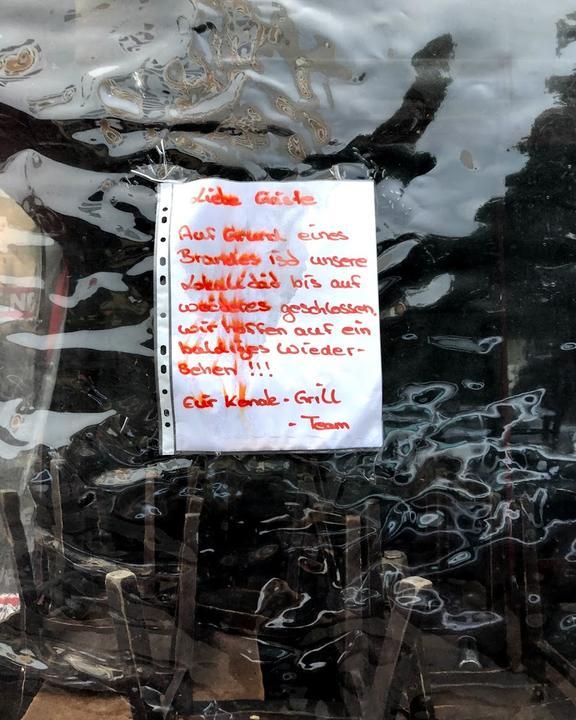 Liebe Gäste
Auf Grund eines
Brandes isd unsere
Lokalidäd bis auf
weiteres geschlossen,
wir hoffen auf ein
baldiges Wieder-
sehen !!!
Eur Kanak-Grill
- Team